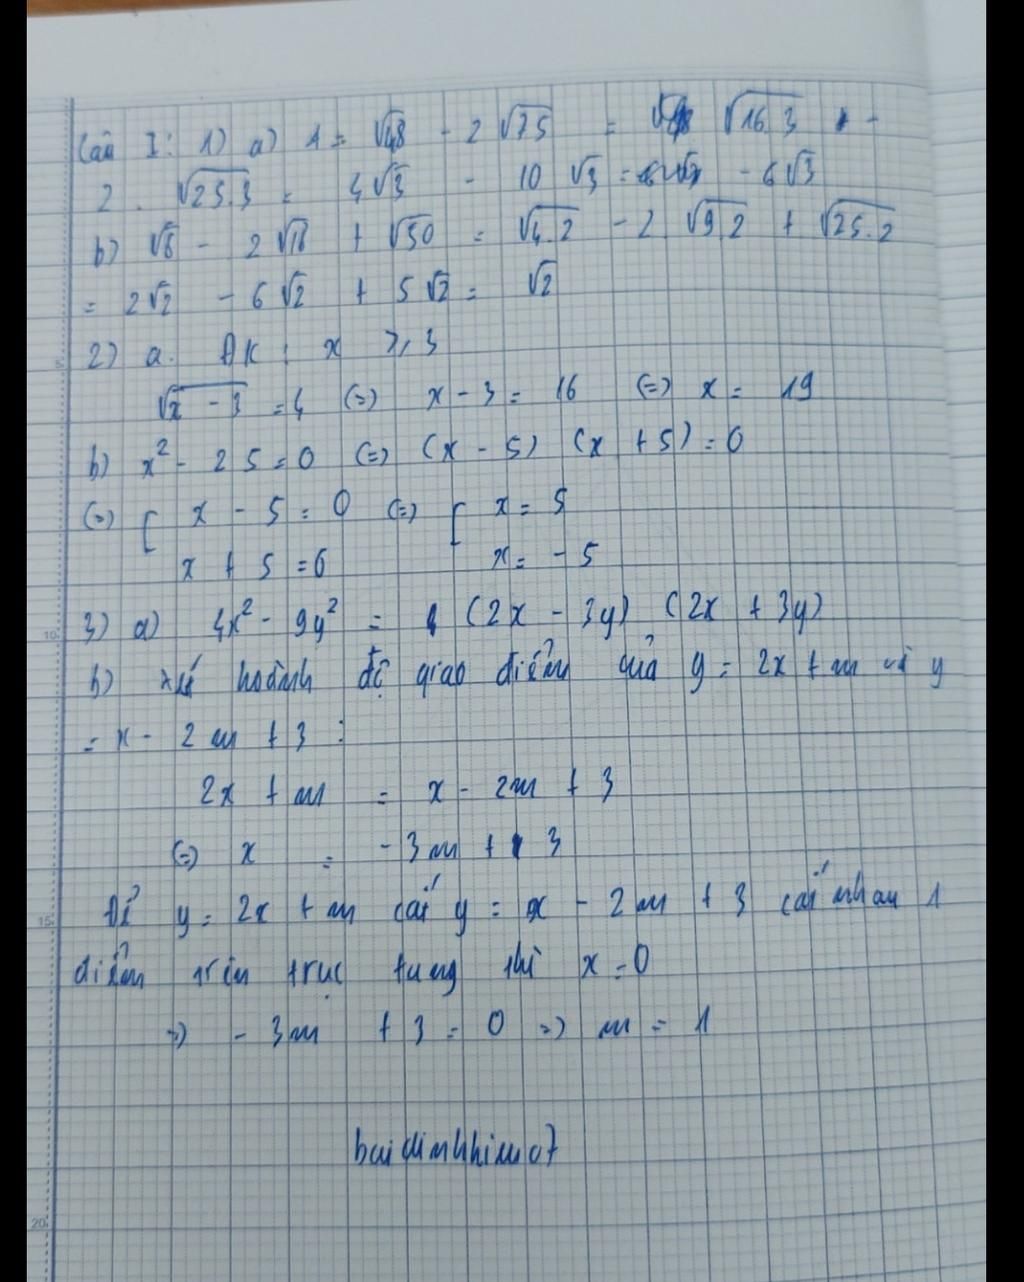 Câu I: 1) a) A = √48 - 2√75 = √16.3 -
2. √25.3 = 4√3 - 10√3 = - 6√3
b) √8 - 2√18 + √50 = √4.2 - 2√9.2 + √25.2
= 2√2 - 6√2 + 5√2 = √2
2) a. ĐK: x ≥ 3
√x - 3 = 4 (=) x - 3 = 16 (=) x = 19
b) x² - 25 = 0 (=) (x - 5) (x + 5) = 0
(=) [ x - 5 = 0 (=) [ x = 5
x + 5 = 0 x = - 5
3) a) 4x² - 9y² = (2x - 3y) (2x + 3y)
b) xét hoành độ giao điểm của y = 2x + m và y
= x - 2m + 3 :
2x + m = x - 2m + 3
(=) x = - 3m + 3
Để y = 2x + m cắt y = x - 2m + 3 cắt nhau 1
điểm trên trục tung thì x = 0
=) - 3m + 3 = 0 =) m = 1
5
10
15
20